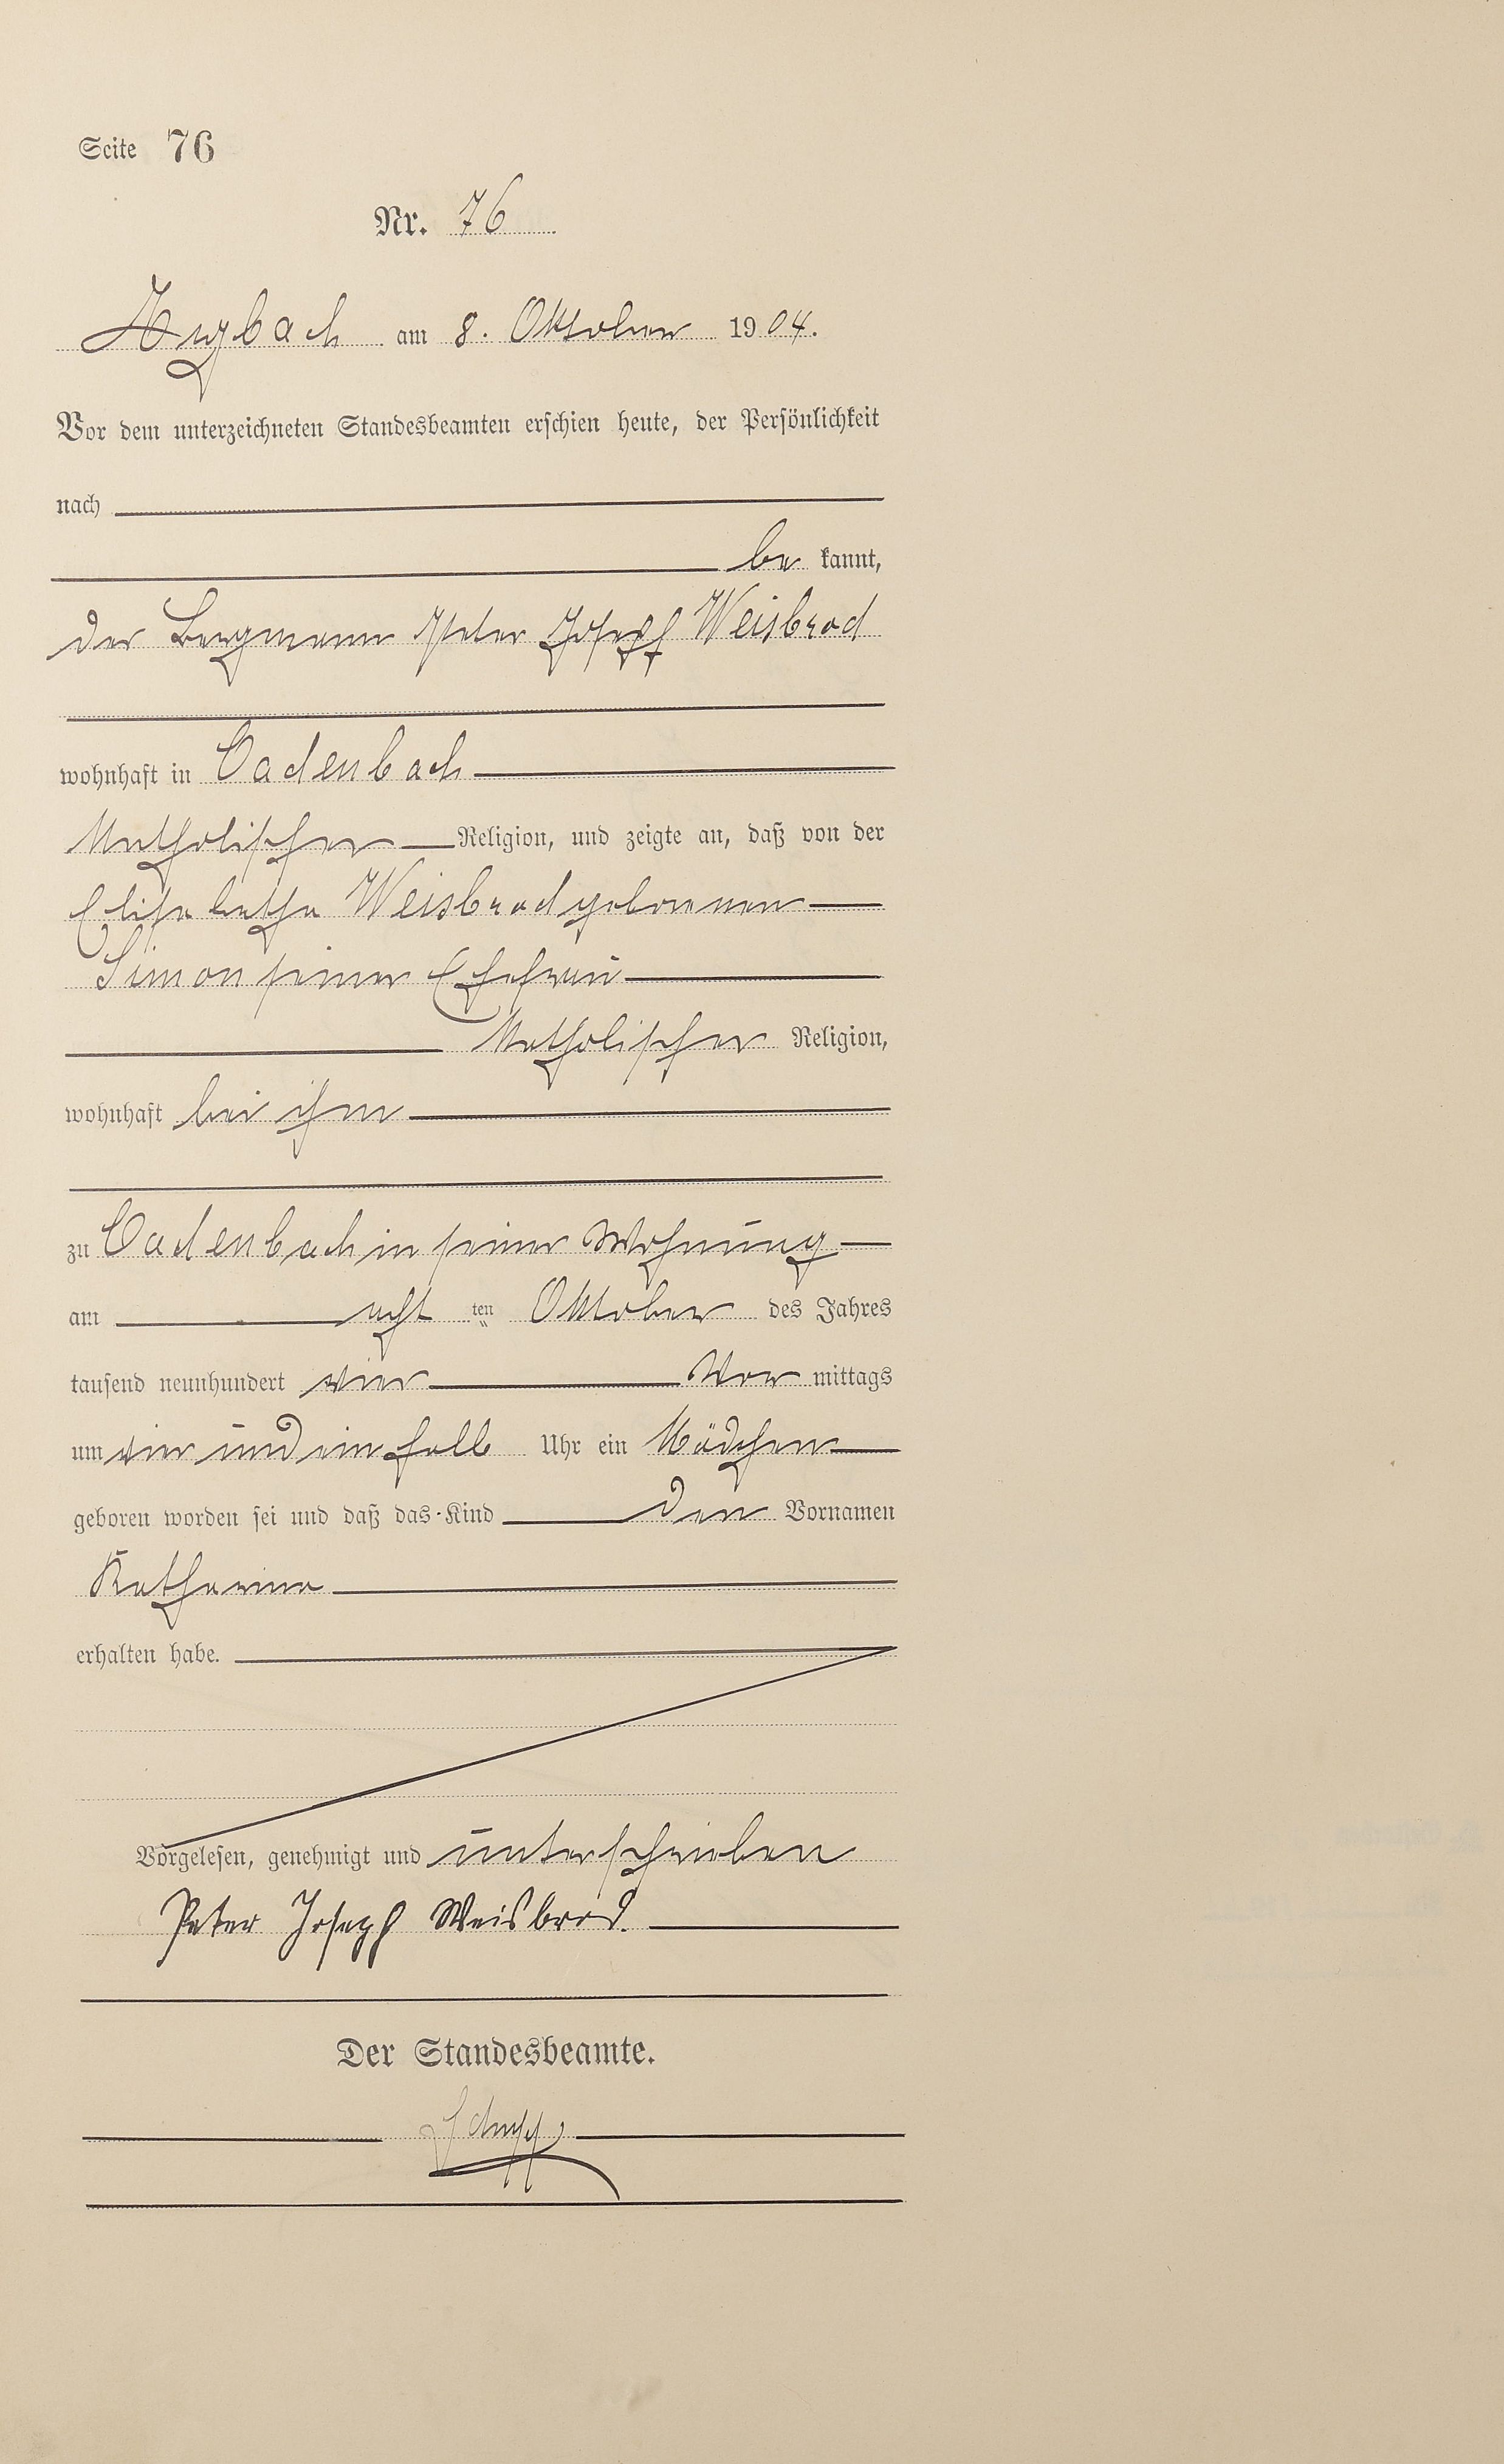 Seite 76
Nr. 76
Arzbach am 8. Oktober 1904.
Vor dem unterzeichneten Standesbeamten erschien heute, der Persönlichkeit
nach
be kannt,
der Bergmann Peter Josef Weisbrod
wohnhaft in Cadenbach
Katholischer Religion, und zeigte an, daß von der
Elisabetha Weisbrod geborenen
Simon seiner Ehefrau
Katholischer Religion,
wohnhaft bei ihm
zu Cadenbach in seiner Wohnung
am acht ten Oktober des Jahres
tausend neunhundert vier Vor mittags
um vier und ein halb Uhr ein Mädchen
geboren worden sei und daß das Kind den Vornamen
Katharina
erhalten habe.
Vorgelesen, genehmigt und unterschrieben
Peter Joseph Weisbrod.
Der Standesbeamte.